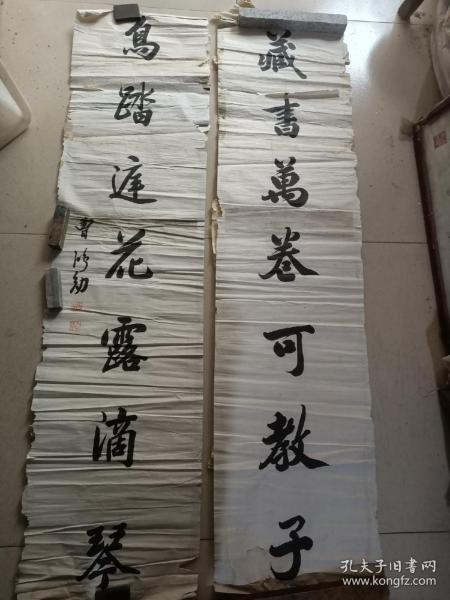 藏書萬卷可教子
鳥踏逕花露滴琴
曹鸿勛
孔夫子旧书网
www.kongfz.com